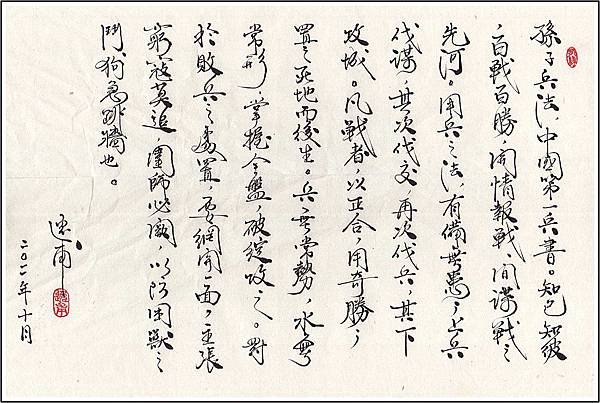 孫子兵法，中國第一兵書。知己知彼
，百戰百勝，開情報戰、間諜戰之
先河。用兵之法，有備無患，上兵
伐謀，其次伐交，再次伐兵，其下
攻城。凡戰者，以正合，用奇勝，
置之死地而後生。兵無常勢，水無
常形，掌握全盤，破綻攻之。對
於敗兵之處置，要網開一面，主張
窮寇莫追，圍師必闕，以防困獸之
鬥，狗急跳牆也。
二〇二一年十月